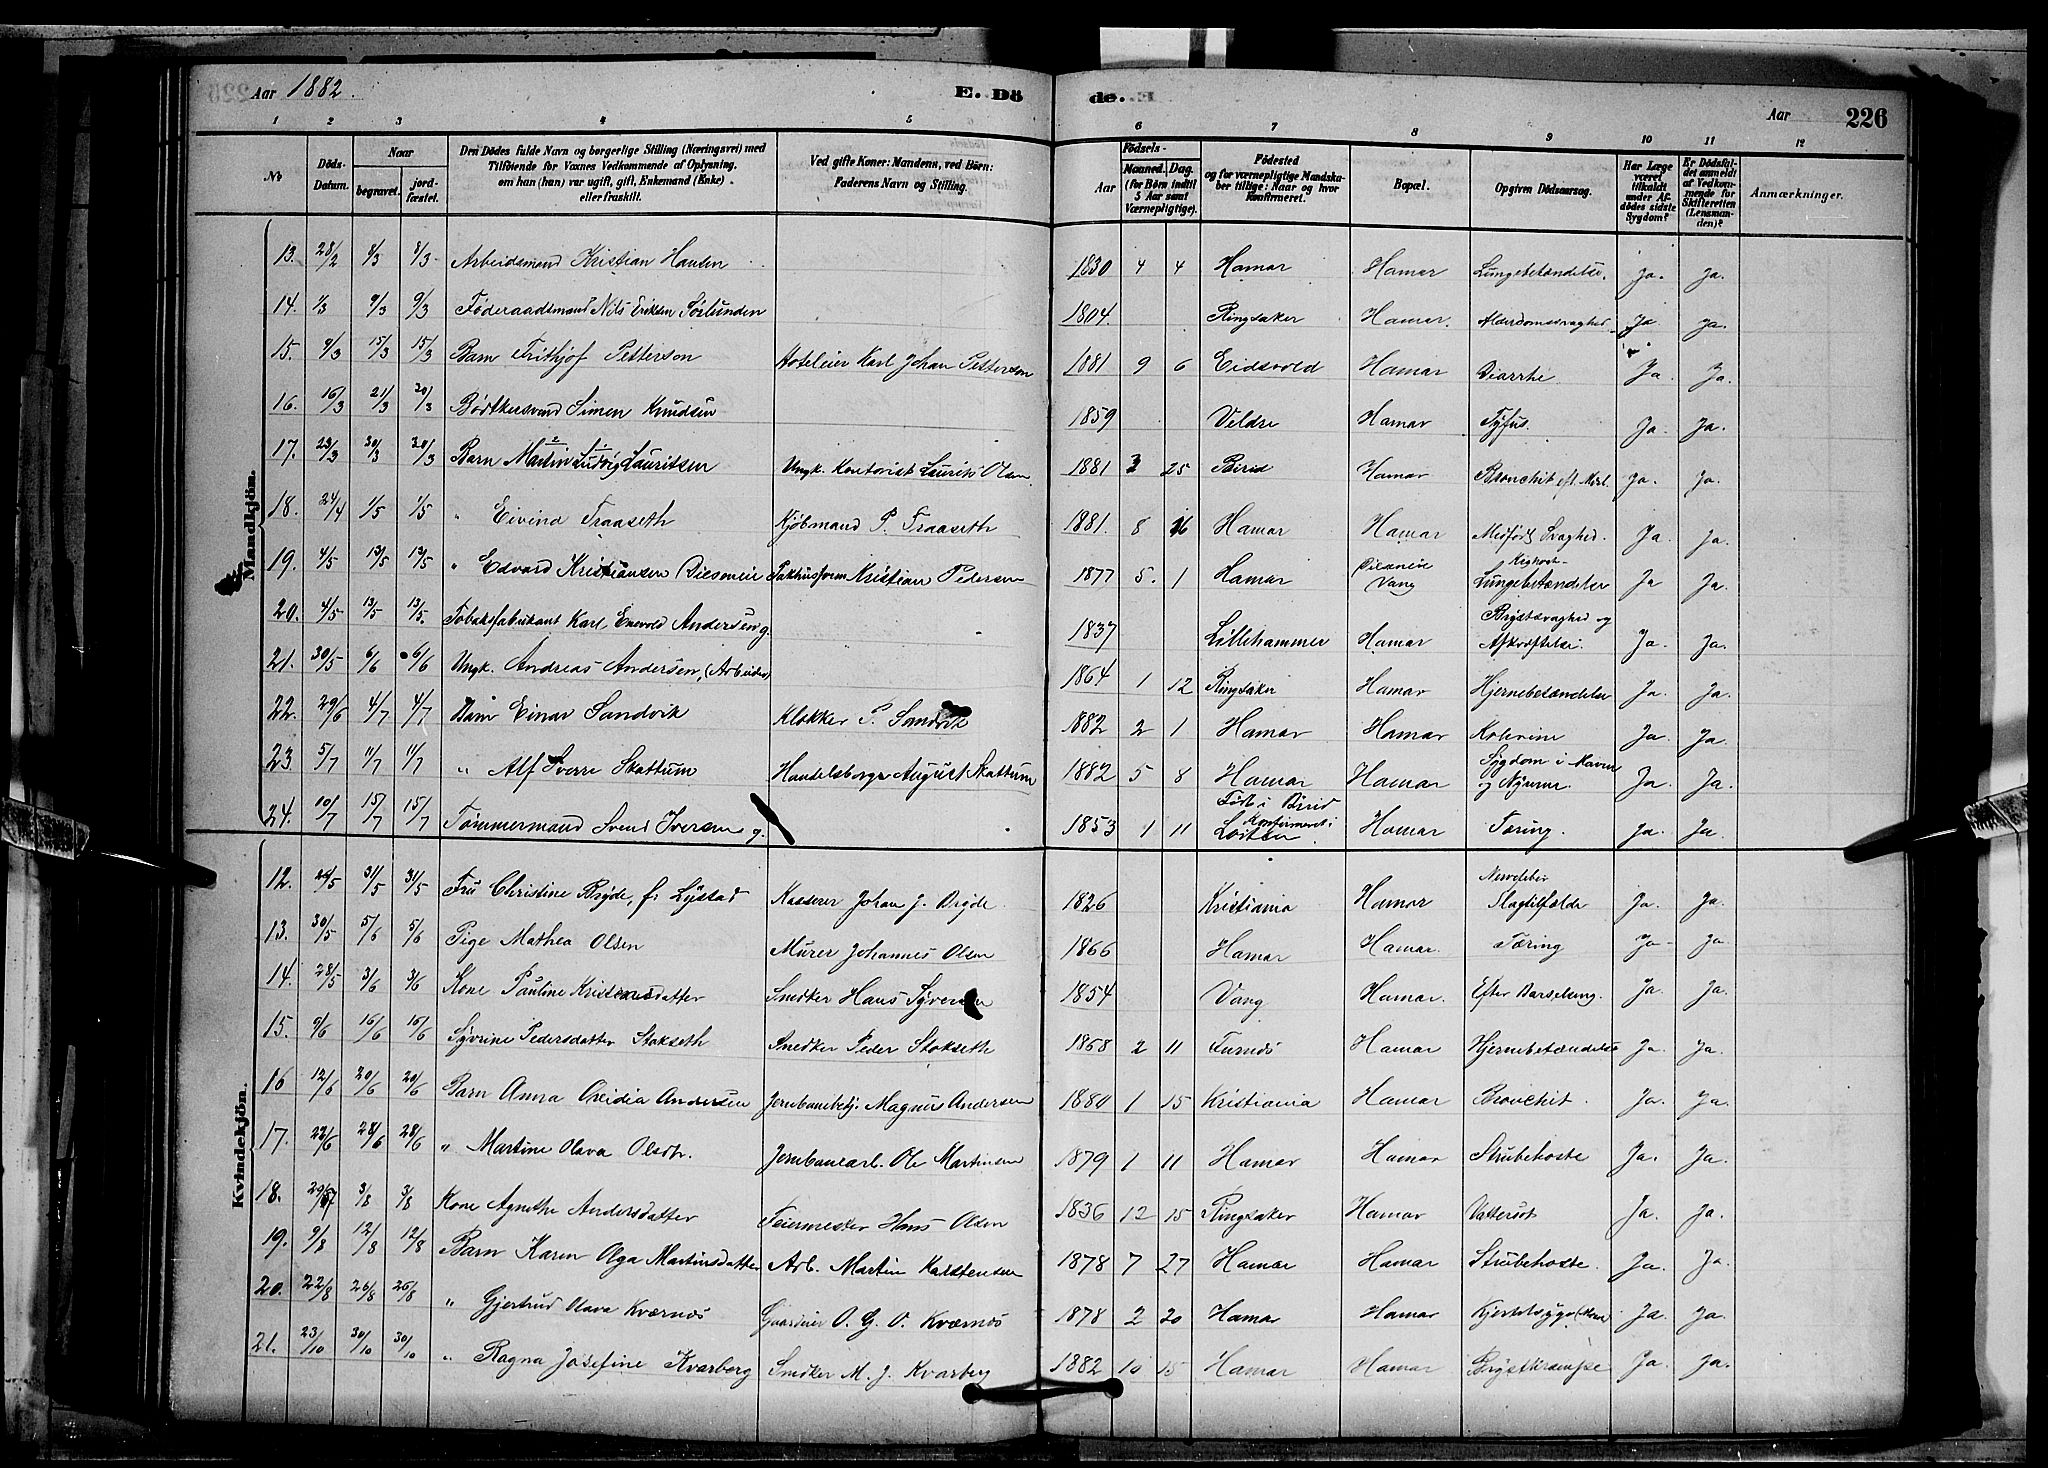 Aar 1882.
E. Dö de.
Aar 226
1 2 3 4 5 6 7 8 9 10 11 12
No
Döds-Datum.
Naar
begravet.
jord-fæstet.
Den Dödes fulde Navn og borgerlige Stilling (Næringsvei) med
Tilföiende for Voxnes Vedkommende af Oplysning,
om han (hun) var ugift, gift, Enkemand (Enke)
eller fraskilt.
Ved gifte Koner: Mandens, ved Börn:
Faderens Navn og Stilling.
Födsels-
Aar
Maaned. Dag.
(for Börn indtil
5 Aar samt
Værnepligtige).
Födested
og for værnepligtige Mandska-
ber tillige: Naar og hvor
konfirmeret.
Bopæl.
Opgiven Dödsaarsag.
Har Læge
været
tilkaldt
under Af-
dödes sidste
Sygdom?
Er Dödsfal-
det anmeldt
af Vedkom-
mende for
Skifteretten
(Lensman-
den)?
Anmærkninger.
Mandkjön.
13. 28/2 8/3 8/3 Arbeidsmand Kristian Hansen 1830 4 4 Hamar Hamar Lungebetændelse. Ja. Ja.
14. 1/3 9/3 9/3 Föderaadsmand Nils Eriksen Sörlunden 1804. Ringsaker Hamar. Alderdomssvaghed Ja Ja.
15. 9/3 15/3 15/3 Barn Frithjof Petterson Hoteleier Karl Johan Petterson 1881 9 6 Eidsvold Hamar Diarrhe Ja Ja.
16. 16/3 21/3 20/3 Bödtkersvend Simen Knudsen 1859 Veldre Hamar Tyfus. Ja Ja.
17. 23/3 30/3 30/3 Barn Martin Ludvig Lauritsen Ungk. Kontorist Laurits Olsen 1881 3 25 Birid Hamar Bronchit eft. Mesl. Ja. Ja.
18. 24/4 1/5 1/5 " Eivind Fraaseth Kjöbmand P. Fraaseth 1881. 8 16 Hamar Hamar Medfödt Svaghed. Ja Ja.
19. 4/5 13/5 13/5 " Edvard Kristiansen Diseneie Pakhusform Kristian Pedersen 1877 5. 1 Hamar Diseneie Vang Kighost Lungebetændelse Ja Ja.
20. 4/5 13/5 13/5. Tobaksfabrikant Karl Enevold Andersen g. 1837 Lillehammer Hamar Brystsvaghed og Afkræftelse. Ja Ja.
21. 30/5 6/6 6/6 Ungk. Andreas Andersen, (Arbeider) 1864 1 12 Ringsaker Hamar Hjernebetændelse Ja. Ja.
22. 29/6 4/7 4/7 Barn Einar Sandvik Klokker P. Sandvik 1882 2 1 Hamar Hamar Kolerine Ja. Ja.
23 5/7 11/7 11/7 " Alf Sverre Skattum Handelsborger August Skattum 1882 5 8 Hamar Hamar Sygdom i Maven og Nyrerne Ja. Ja.
24. 10/7 15/7 15/7 Tömmermand Svend Iversen g. 1853 1 11 Födt i Birid Konfirmeret i Löiten Hamar Tæring. Ja. Ja.
Kvindekjön.
12. 5 31/5 31/5 Fru Christine Bryde, f. Lystad Kasserer Johan J. Bryde. 1826 Kristiania Hamar Nervefeber Slagtilfælde Ja. Ja.
13. 30/5 5/6 5/6 Pige Mathea Olsen Murer Johannes Olsen 1866 Hamar Hamar. Tæring Ja Ja.
14. 28/5 3/6 3/6 Kone Pauline Kristensdatter Snedker Hans Syversen 1854 Vang Hamar. Efter Barselseng. Ja. Ja.
15. 9/6 16/6 16/6 Syverine Pedersdatter Stokseth Snedker Peder Stokseth 1868 2 11 Furnes Hamar Hjernebetændelse Ja. Ja.
16 12/6 20/6 20/6 Barn Anna Ovidia Andersen Jernbanebetj. Magnus Andersen 1880 1 15 Kristiania Hamar Bronchit. Ja. Ja.
17. 22/6 28/6 28/6 " Martine Olava Olsdtr. Jernbanearb. Ole Martinsen 1879 1 11 Hamar Hamar Strubehoste Ja. Ja.
18. 29/7 3/8 3/8 Kone Agnethe Andersdatter Feiermester Hans Olsen 1836 12 15 Ringsaker Hamar Vattersot Ja. Ja.
19. 9/8 12/8 12/8 Barn Karen Olga Martinsdatter Arb. Martin Karstensen 1878 7 27 Hamar Hamar Strubehoste. Ja. Ja.
20. 22/8 26/8 26/8 " Gjertrud Olava Kværnes Gaardeier O. G. O. Kværnes 1878 2 20 Hamar Hamar Kjertelsyge Ja. Ja.
21. 23/10 30/10 30/10 " Ragna Josefine Kvarberg Snedker M. J. Kvarberg 1882 10 15 Hamar Hamar Brystkrampe Ja. Ja.